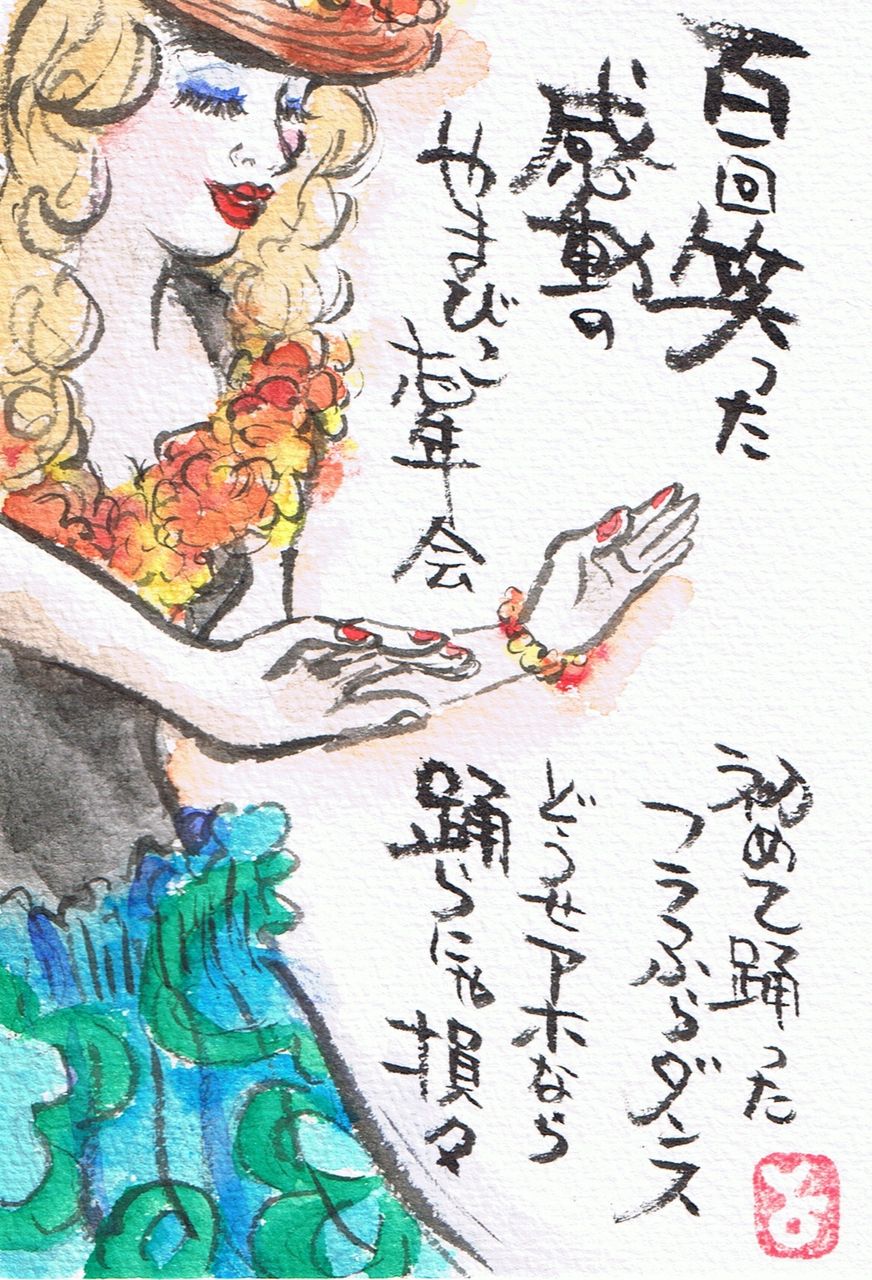 百回笑った
感動の
やまびこ
忘年会
初めて踊った
フラふらダンス
どうせアホなら
踊らにゃ損々